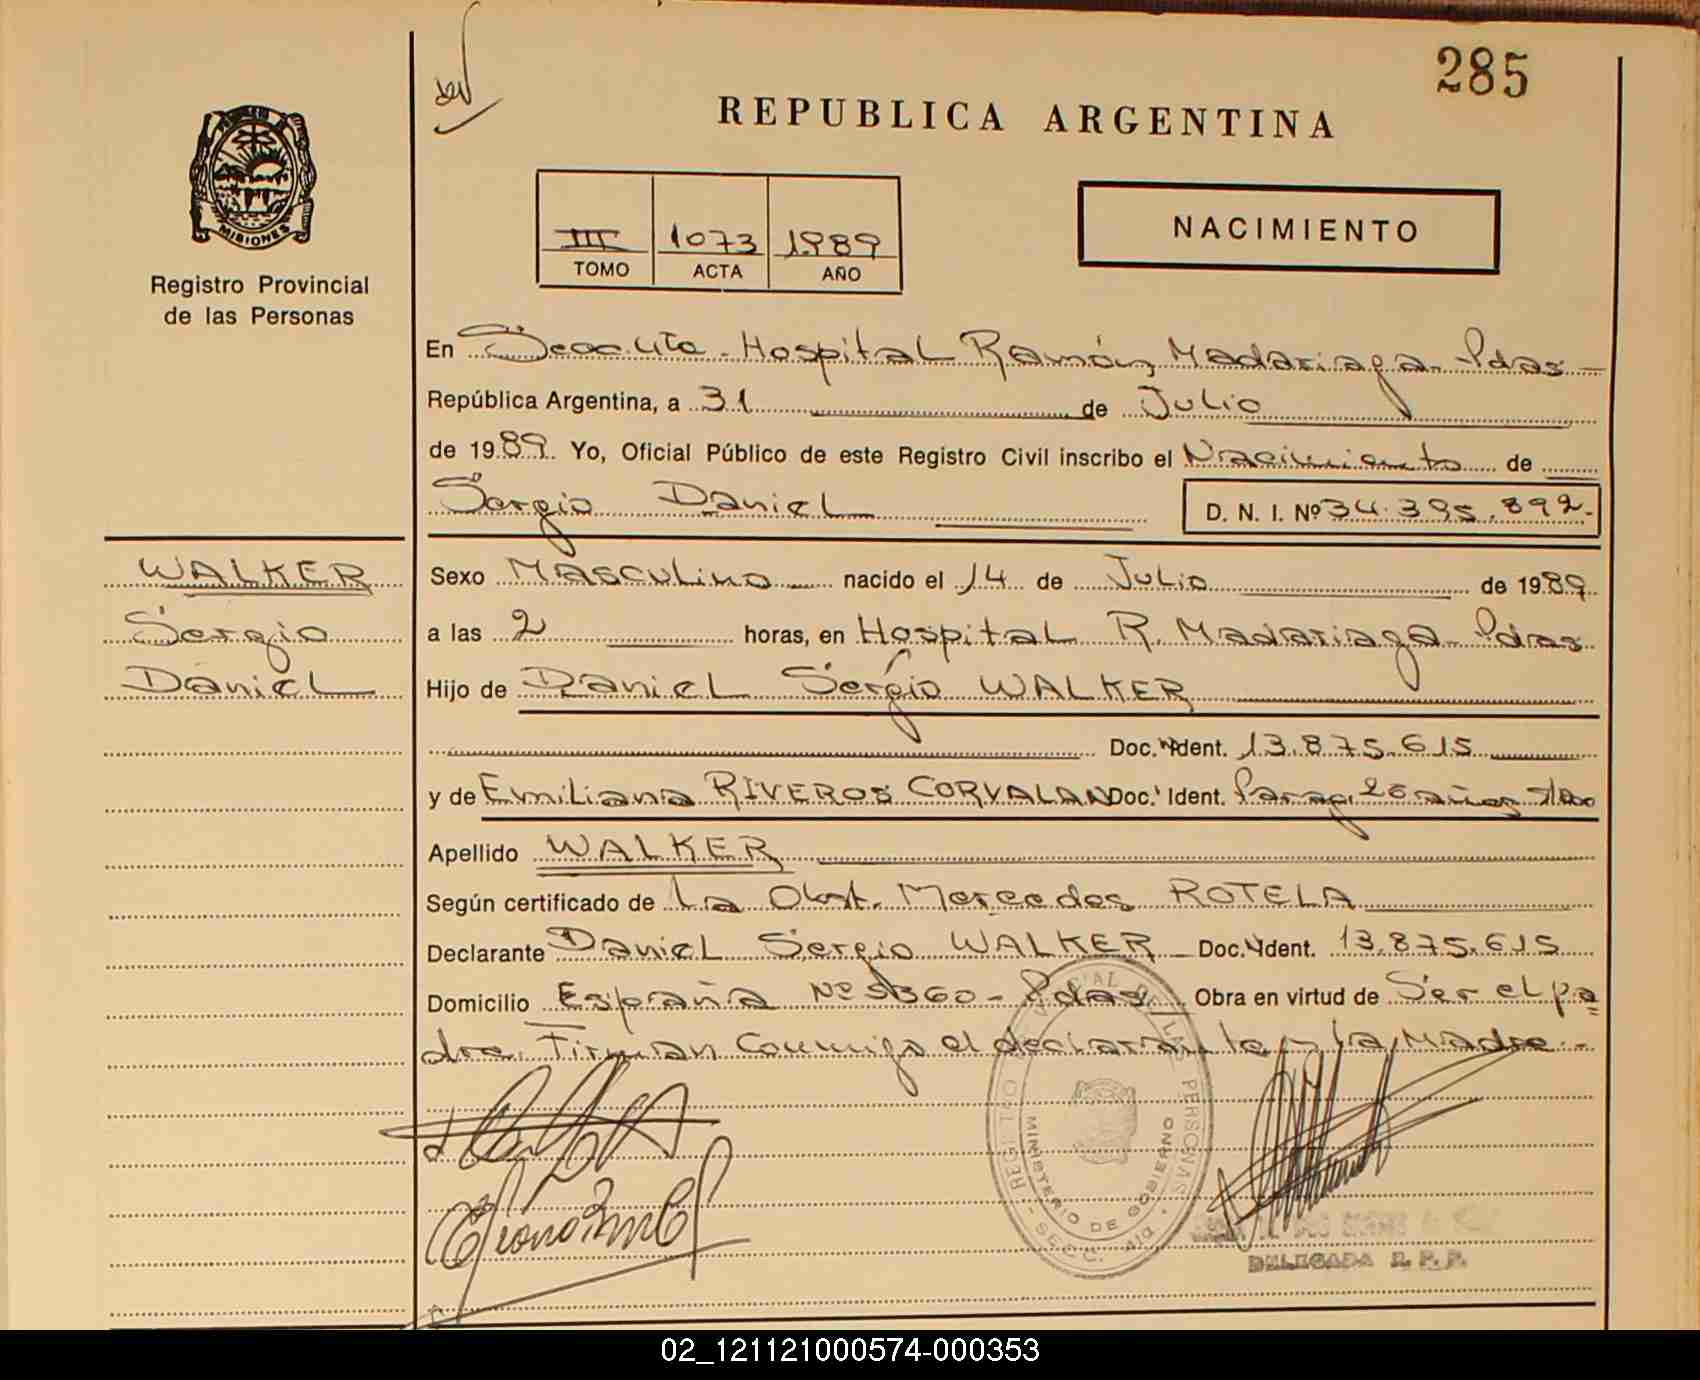 285
REPUBLICA ARGENTINA
MISIONES
Registro Provincial
de las Personas
III 1073 1989
TOMO ACTA AÑO
NACIMIENTO
En Secc 4ta - Hospital Ramón Madariaga - Pdas -
República Argentina, a 31 de Julio
de 1989. Yo, Oficial Público de este Registro Civil inscribo el Nacimiento de
Sergio Daniel D. N. I. Nº 34.395.892.-
WALKER
Sergio
Daniel
Sexo Masculino nacido el 14 de Julio de 1989
a las 2 horas, en Hospital R. Madariaga - Pdas
Hijo de Daniel Sergio WALKER
Doc. Ident. 13.875.615
y de Emiliana RIVEROS CORVALAN Doc. Ident. Parag. años
Apellido WALKER
Según certificado de La Obst. Mercedes ROTELA
Declarante Daniel Sergio WALKER Doc. Ident. 13.875.615
Domicilio España Nº 5360 - Pdas Obra en virtud de Ser el pa
dre. Firman Conmigo el declarante y la Madre.-
REGISTRO PROVINCIAL DE LAS PERSONAS
MINISTERIO DE GOBIERNO
SECC. 4ta
DELEGADA R. P. P.
02_121121000574-000353